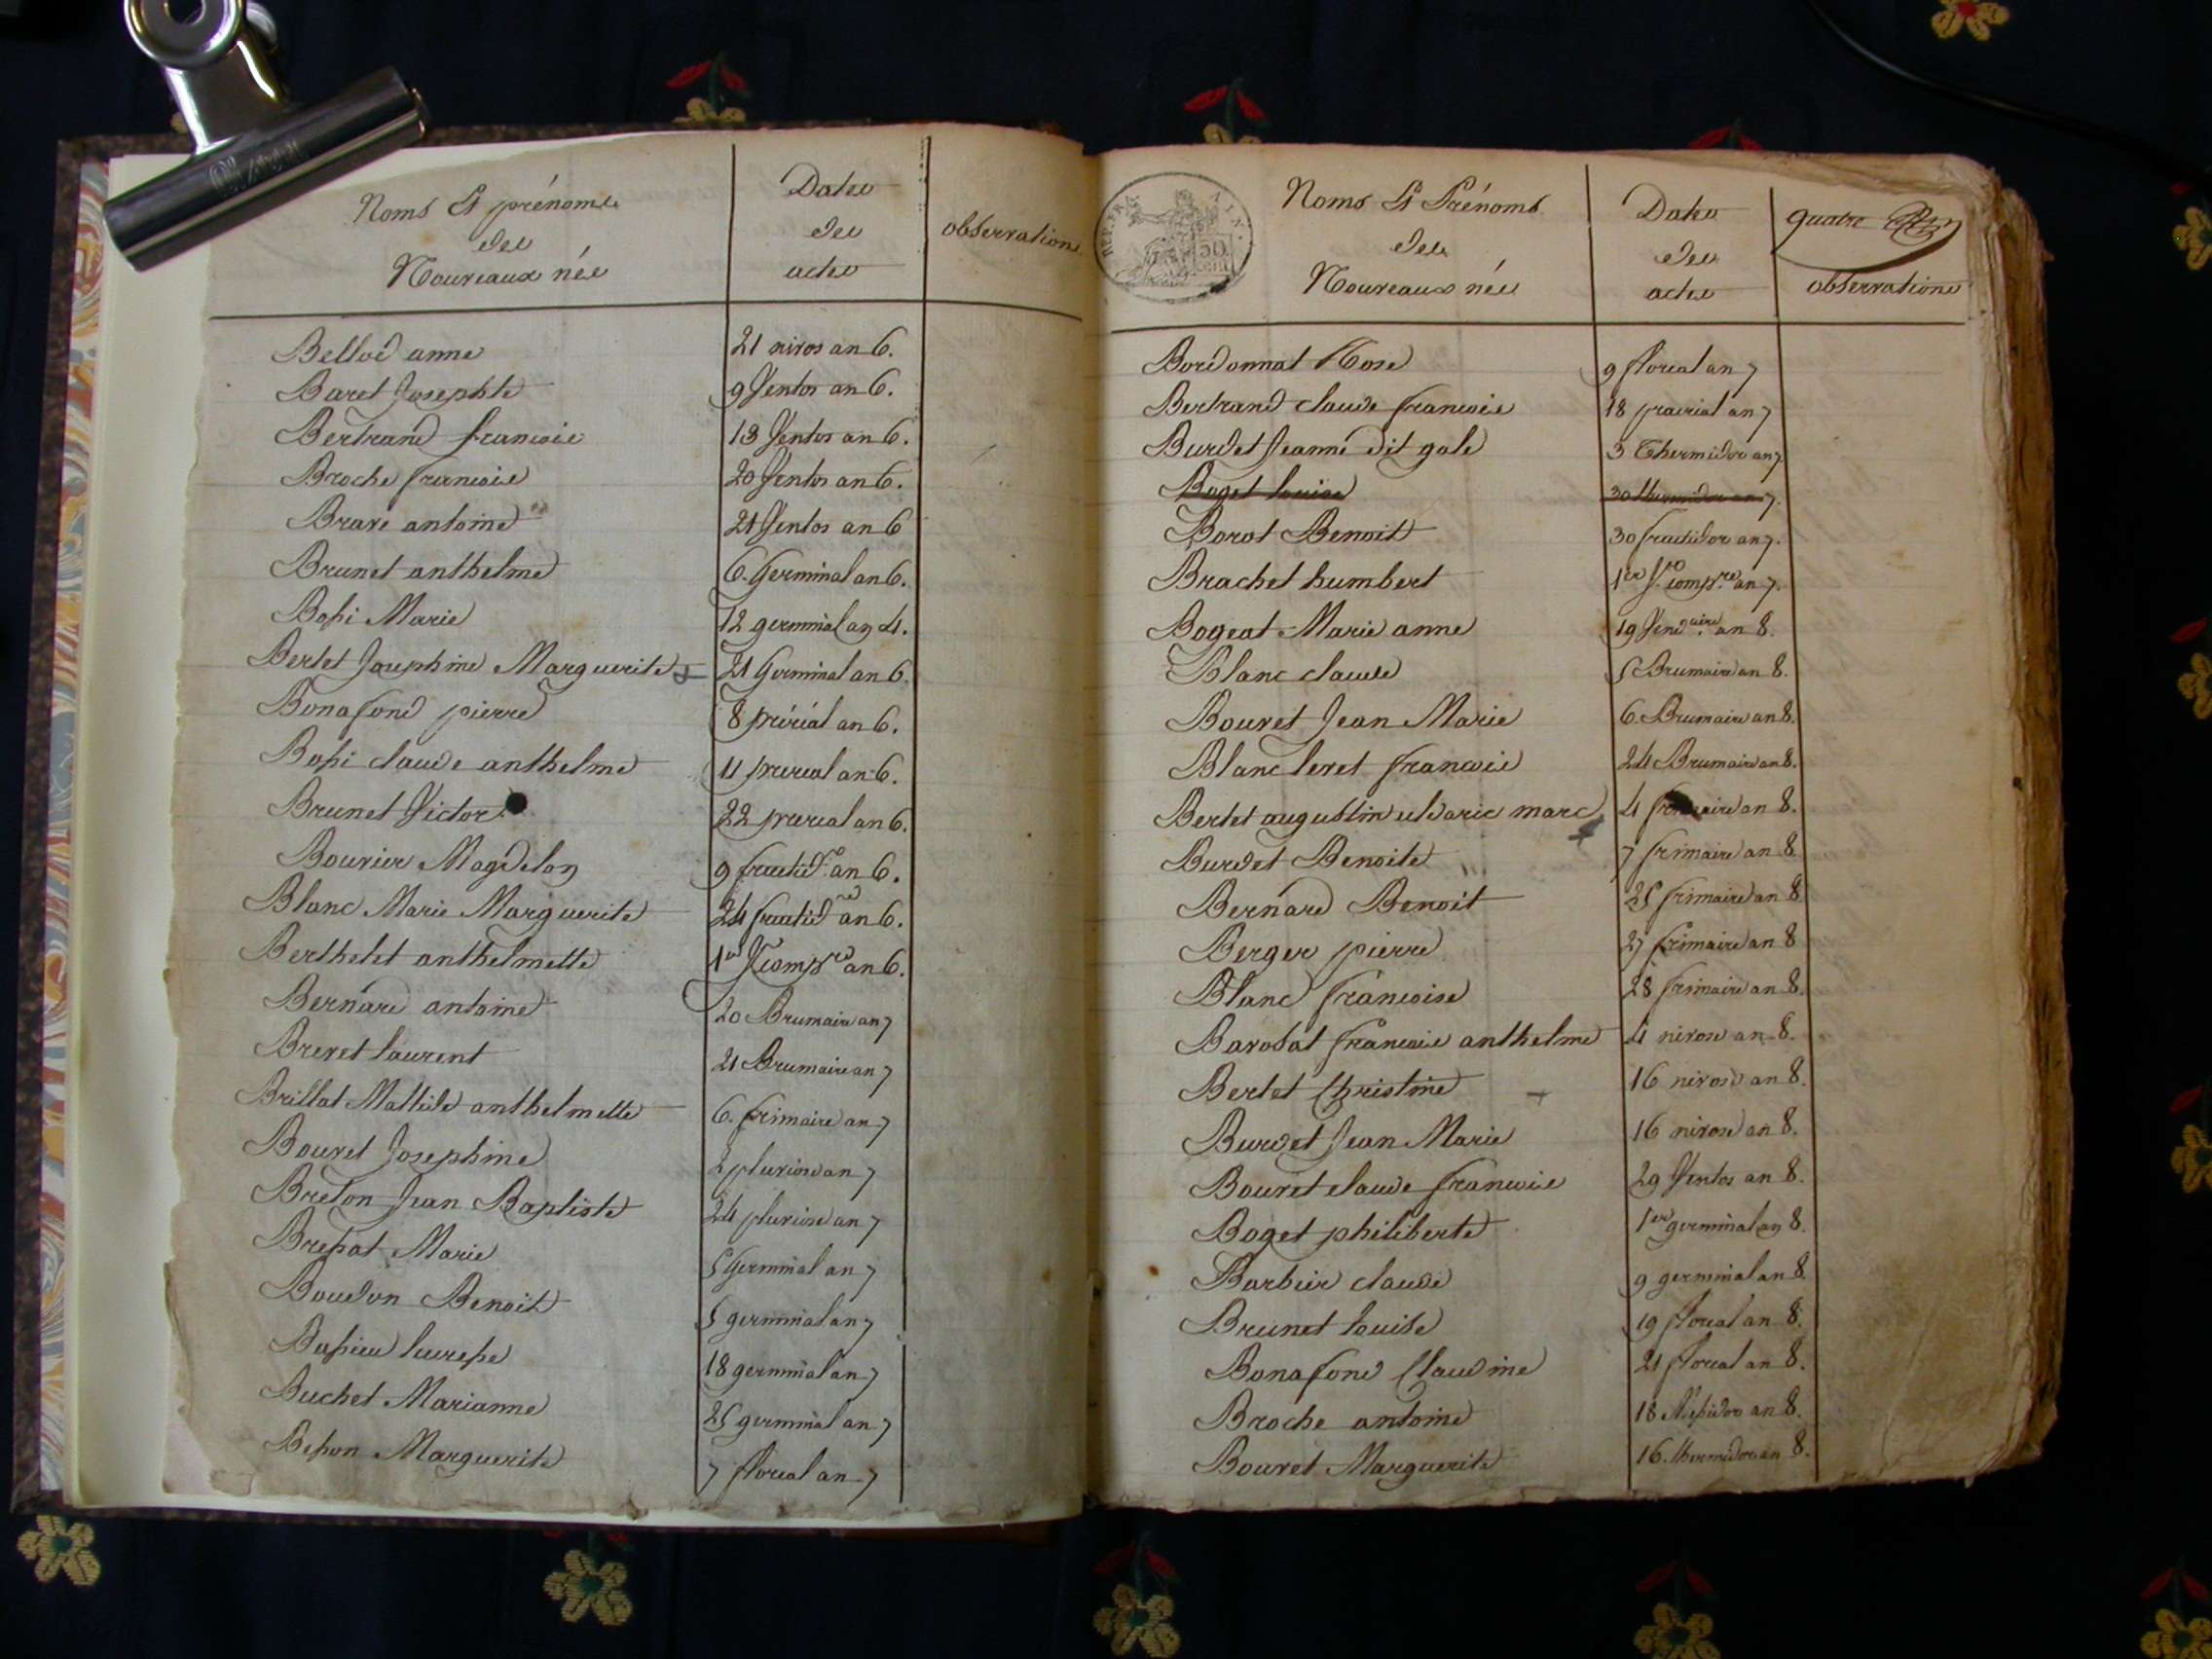 Noms Et prénoms
des
Nouveaux nés
Dates
des
actes
observations
Bellod anne 21 nivos an 6.
Baret Josephte 9 Ventos an 6.
Bertrand francois 13 Ventos an 6.
Broche francois 20 Ventos an 6.
Brave antoine 21 Ventos an 6
Brunet anthelme 6. Germinal an 6.
Bossi Marie 12 germinal an 4.
Bertet Josephine Marguerite 21 Germinal an 6.
Bonafond pierre 8 préréal an 6.
Bossi claude anthelme 11 prereal an 6.
Brunet Victor 22 prereal an 6.
Bouvier Magdelon 9 fructid.or an 6.
Blanc Marie Marguerite 24 fructid.or an 6.
Berthelet anthelmette 1er J. compre an 6.
Bernard antoine 20 Brumaire an 7
Brevet laurent 21 Brumaire an 7
Brillat Matilde anthelmette 6. frimaire an 7
Bouvet Josephine 2 pluviose an 7
Breton Jean Baptiste 24 pluviose an 7
Bressat Marie 5 Germinal an 7
Boudon Benoit 5 germinal an 7
Bassieu 18 germinal an 7
Buchet Marianne 25 germinal an 7
Besson Marguerite 7 floreal an 7
REP. FRA. AIN.
50
cent.
Noms Et Prénoms
des
Nouveaux nés
Dates
des
actes
quatre
observations
Bordonnat Rose 9 floreal an 7
Bertrand claude francois 18 prairial an 7
Burdet Jeanne dit gole 3 Thermidor an 7.
Boget louise 30 thermidor an 7.
Borot Benoit 30 fructidor an 7.
Brachet humbert 1er J.r compre an 7.
Bogeat Marie anne 19 Vend.aire an 8.
Blanc claude 5 Brumaire an 8.
Bouvet Jean Marie 6. Brumaire an 8.
Blanc leret francois 24 Brumaire an 8.
Bertet augustin uldaric marc 4 frimaire an 8.
Burdet Benoite 7 frimaire an 8
Bernard Benoit 25 frimaire an 8
Berger pierre 27 frimaire an 8
Blanc francoise 28 frimaire an 8.
Barosat francois anthelme 4 nivose an 8.
Bertet Christine 16 nivose an 8.
Burdet Jean Marie 16 nivose an 8.
Bouvet claude francois 29 Ventos an 8.
Boget philiberte 1er germinal an 8.
Barbier claude 9 germinal an 8.
Brunet louise 19 floreal an 8.
Bonafond Claudine 21 floreal an 8.
Broche antoine 18 Messidor an 8.
Bouvet Marguerite 16. thermidor an 8.